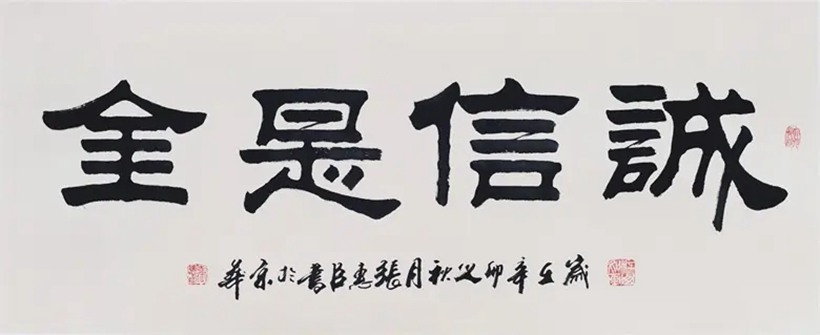 誠信是金
歲在辛卯之秋月張惠臣書於京華